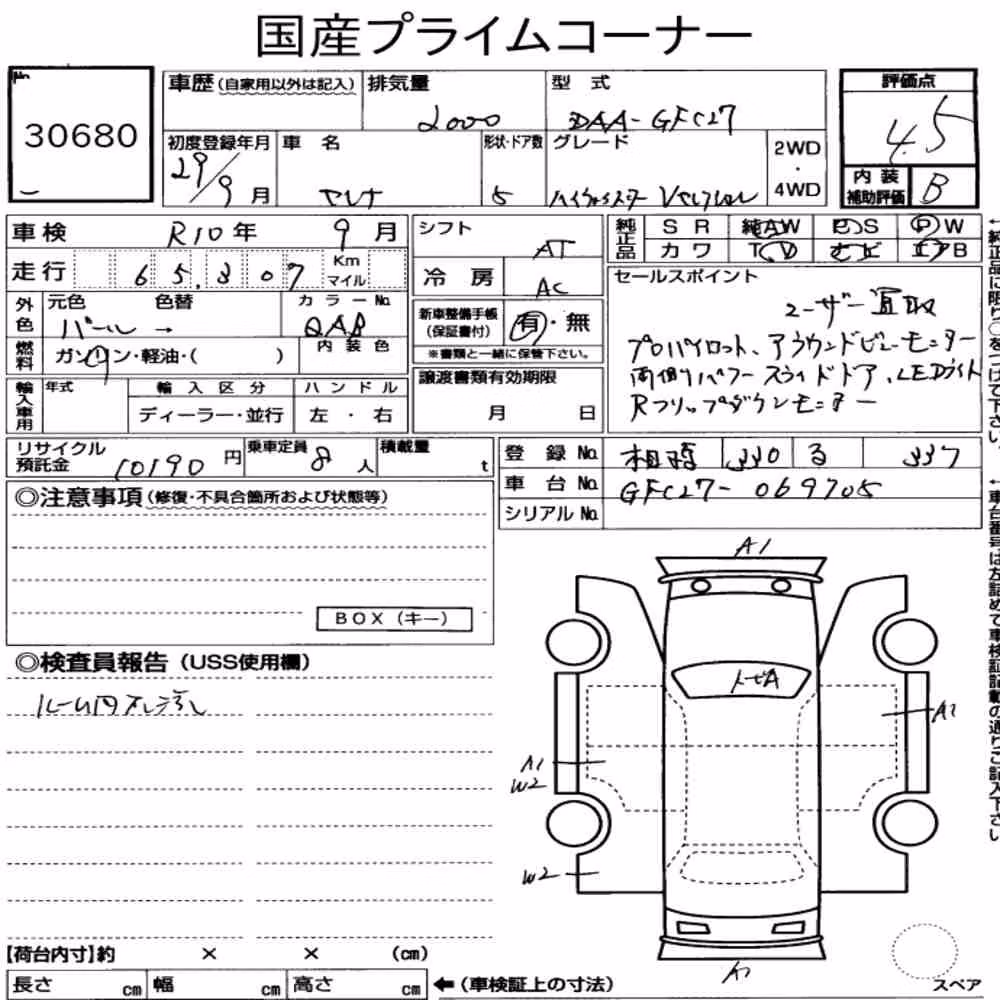 国産プライムコーナー
No.
30680
車歴 (自家用以外は記入)
排気量
2000
型式
DAA-GFC27
評価点
4.5
内装補助評価 B
初度登録年月
29/9月
車名
セレナ
形状・ドア数
5
グレード
ハイウェイスター Vセレクション
2WD・4WD
車検 R10年 9月
シフト AT
純正品 SR 純AW PS PW
カワ TV ナビ エアB
走行 65,307 Km マイル
冷房 AC
セールスポイント
ユーザー買取
プロパイロット、アラウンドビューモニター
両側パワースライドドア、LEDライト
Rフリップダウンモニター
外色 元色 色替 カラーNo.
パール → QAB
新車整備手帳(保証書付) 有・無
※書類と一緒に保管下さい。
燃料 ガソリン・軽油・( ) 内装色
輸入車用 年式 輸入区分 ハンドル
ディーラー・並行 左・右
譲渡書類有効期限
月 日
リサイクル預託金 10190円
乗車定員 8人
積載量 t
登録No. 相模 330 る 337
車台No. GFC27-069705
シリアルNo.
◎注意事項(修復・不具合箇所および状態等)
BOX(キー)
◎検査員報告(USS使用欄)
ルーム内
A1
A
A1
A1
W2
W2
【荷台内寸】約 × × (cm)
長さ cm 幅 cm 高さ cm
←(車検証上の寸法)
スペア
←純正品に限り○をつけて下さい。
←車台番号は左詰めで車検証記載の通りご記入下さい